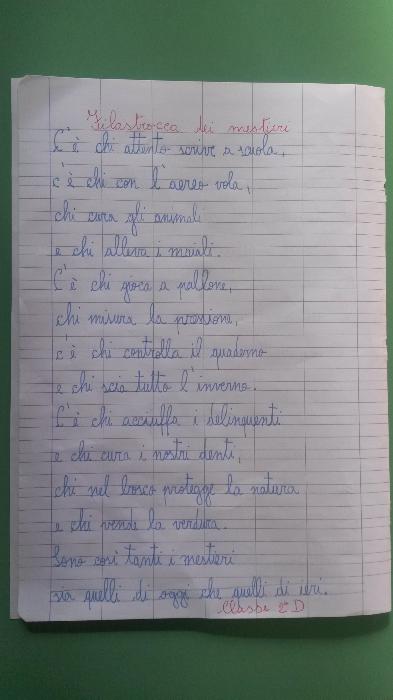 Filastrocca dei mestieri
C'è chi attento scrive a scuola,
c'è chi con l'aereo vola,
chi cura gli animali
e chi alleva i maiali.
C'è chi gioca a pallone,
chi misura la pressione,
c'è chi controlla il quaderno
e chi scia tutto l'inverno.
C'è chi acciuffa i delinquenti
e chi cura i nostri denti,
chi nel bosco protegge la natura
e chi vende la verdura.
Sono così tanti i mestieri
sia quelli di oggi che quelli di ieri.
Classe 2ª D